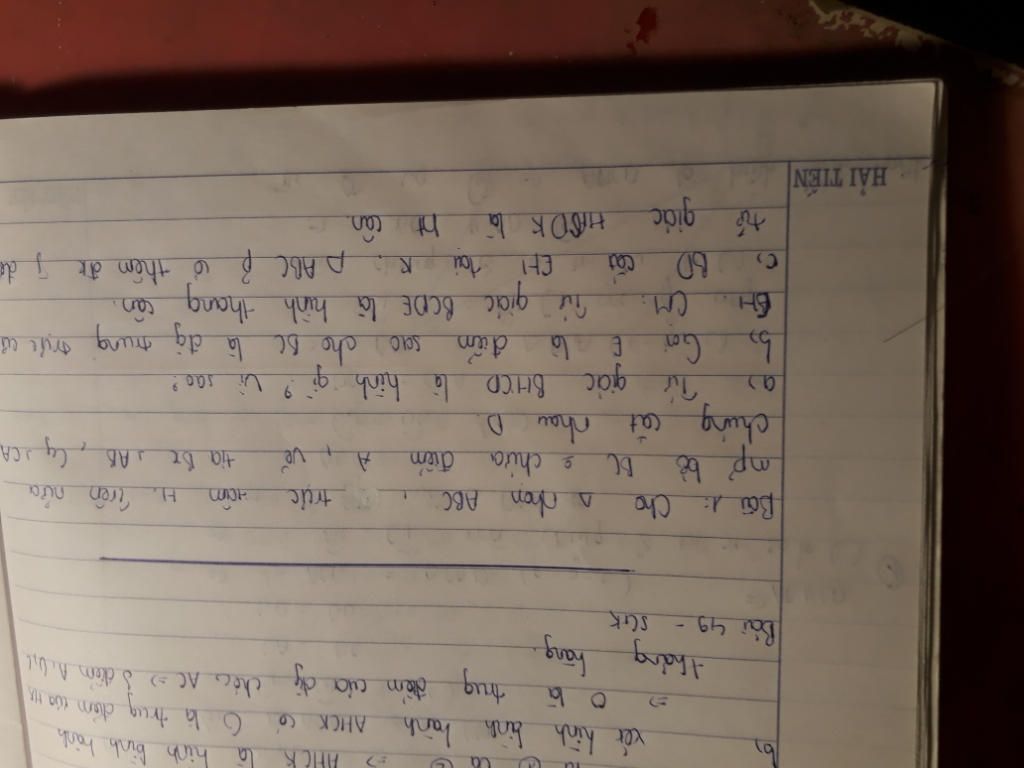 ⇒ AHCK là hình bình hành
b, xét hình bình hành AHCK có O là trug điểm của HK
⇒ O là trug điểm của đg chéo AC ⇒ 3 điểm A, O, C
thẳng hàng.
Bài 49 - SGK
Bài 1: Cho Δ nhọn ABC, trực tâm H. Trên nửa
mp bờ BC ko chứa điểm A, vẽ tia Bx ⊥ AB, Cy ⊥ CA
chúng cắt nhau D.
a, Tứ giác BHCD là hình gì? Vì sao?
b, Gọi E là điểm sao cho BC là đg trung trực củ
EH. CM: Tứ giác BCDE là hình thang cân.
c, BD cắt EH tại K. ABC có thêm đk j để
tứ giác HCDK là ht cân.
HẢI TIẾN